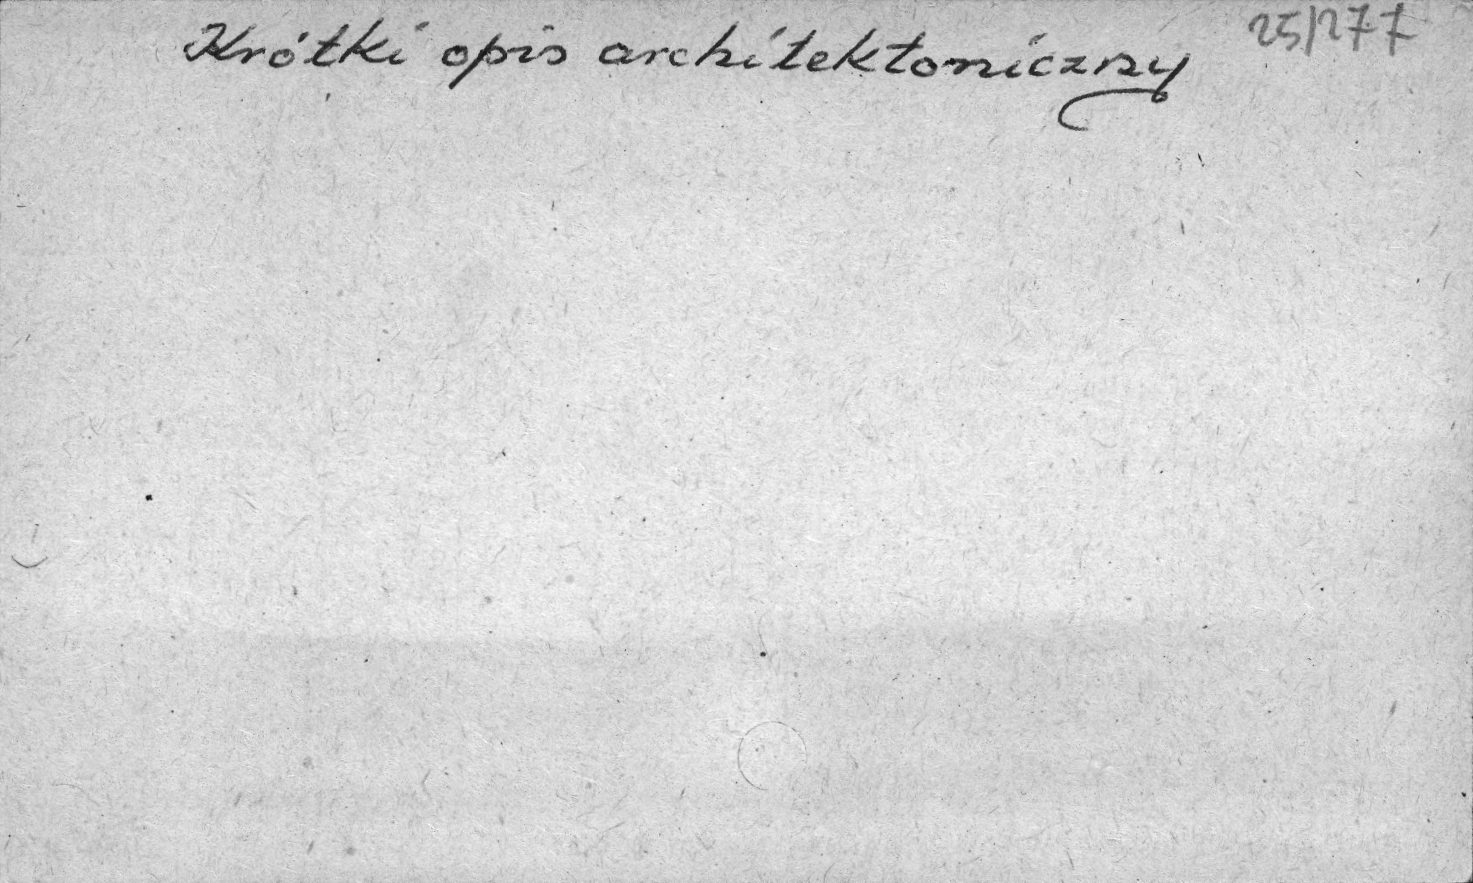 Krótki opis architektoniczny
25/277